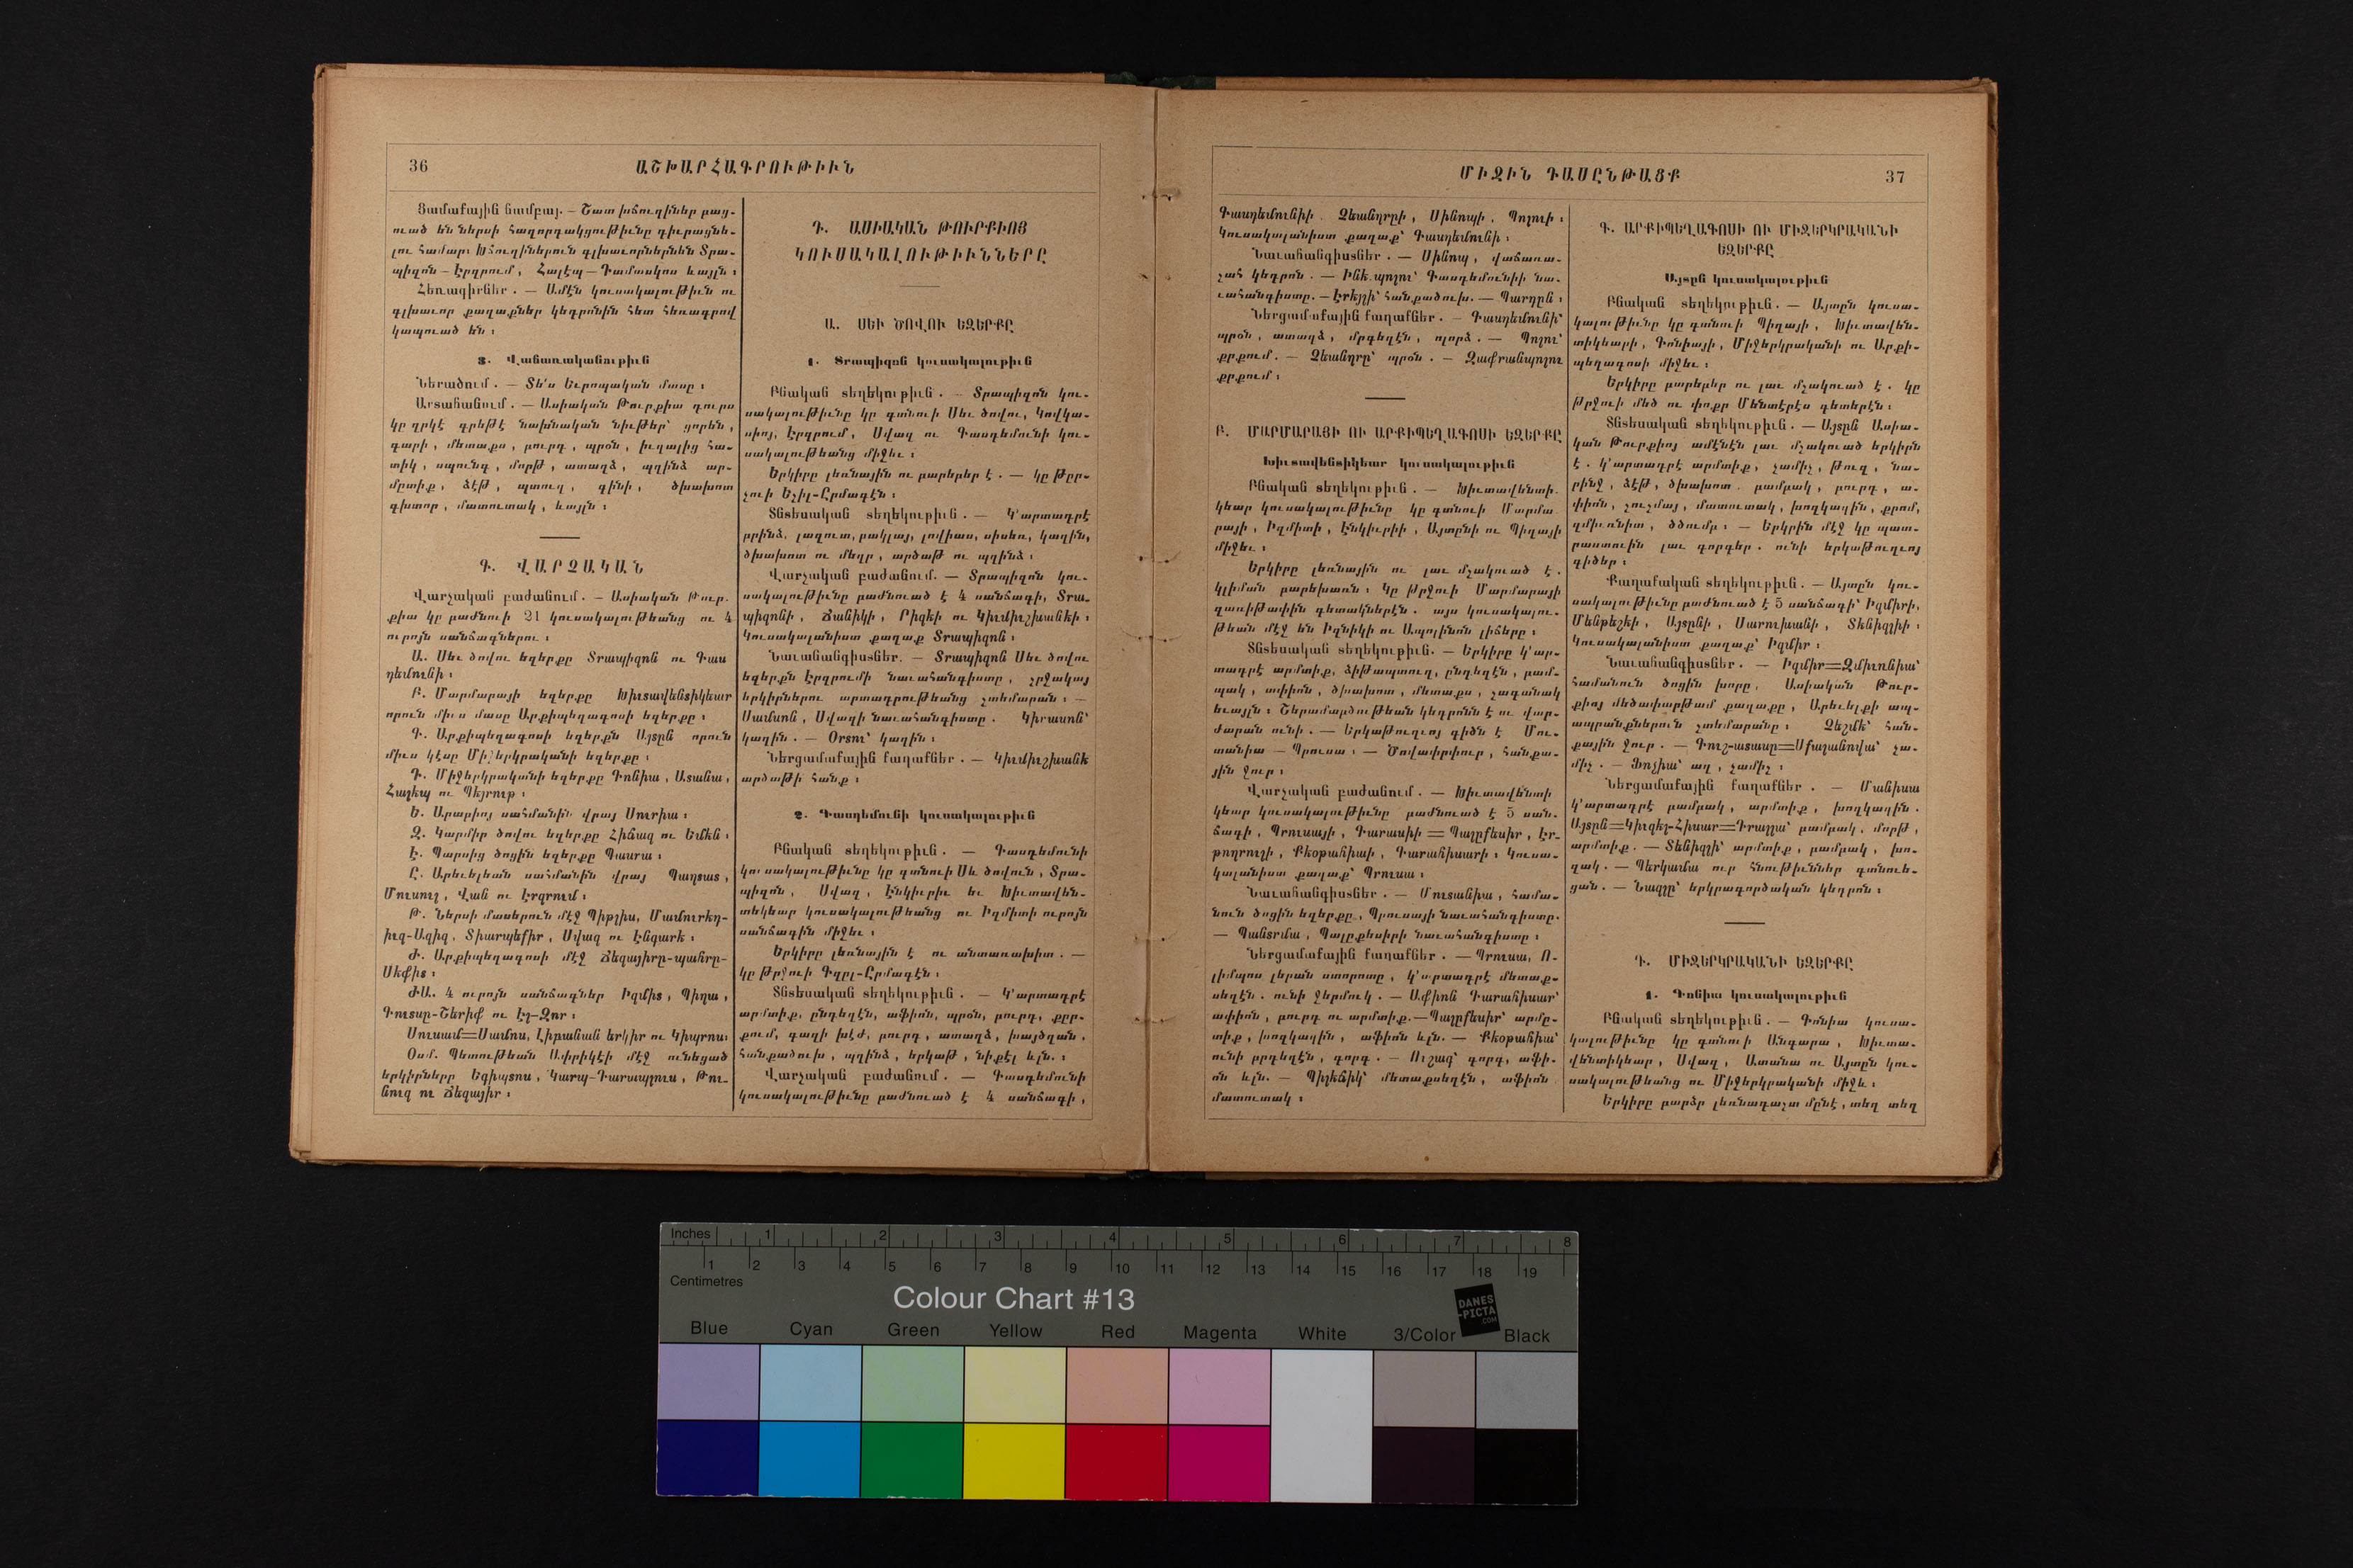 36
ԱՇԽԱՐՀԱԳՐՈՒԹԻՒՆ
Ցամաքային ճամբայ. — Շատ խճուղիներ բաց-
ուած են ներսի հաղորդակցութիւնը դիւրացնե-
լու համար։ Խճուղիներուն գլխաւորներնեն Տրա-
պիզոն — Էրզրում, Հալէպ — Դամասկոս ևայլն։
Հեռագիրներ. — Ամէն կուսակալութիւն ու
գլխաւոր քաղաքներ կեդրոնին հետ հեռագրով
կապուած են։
3. Վաճառականութիւն
Ներածում. — Տե՛ս Եւրոպական մասը։
Արտահանում. — Ասիական Թուրքիա դուրս
կը ղրկէ գրեթէ նախնական նիւթեր՝ ցորեն,
գարի, մետաքս, բուրդ, պրօն, իւղալից հա-
տիկ, սպունգ, մորթ, ատաղձ, պղինձ ար-
մըտիք, ձէթ, պտուղ, գինի, ծխախոտ
գխտոր, մատուտակ, ևայլն։
Գ. ՎԱՐՉԱԿԱՆ
Վարչական բաժանում. — Ասիական Թուր-
քիա կը բաժնուի 21 կուսակալութեանց ու 4
ուրոյն սանճագներու։
Ա. Սեւ ծովու եզերքը Տրապիզոն ու Գաս
դեմունի։
Բ. Մարմարայի եզերքը Խիւտավենտիկեար
որուն միւս մասը Արքիպեղագոսի եզերքը։
Գ. Արքիպեղագոսի եզերքն Այտըն որուն
միւս կէսը Միջերկրականի եզերքը։
Դ. Միջերկրականի եզերքը Գոնիա, Ատանա,
Հալեպ ու Պէյրութ։
Ե. Արաբիոյ սահմանին վրայ Սուրիա։
Զ. Կարմիր ծովու եզերքը Հիճազ ու Եմէն։
Է. Պարսից ծոցին եզերքը Պասրա։
Ը. Արեւելեան սահմանին վրայ Պաղտատ,
Մուսուլ, Վան ու Էրզրում։
Թ. Ներսի մասերուն մէջ Պիթլիս, Մամուրէդ-
իւզ-Ազիզ, Տիարպեքիր, Սվազ ու Էնգարէ։
Ժ. Արքիպեղագոսի մէջ Ճեզայիրը-պահրը-
Սէֆիտ։
ԺԱ. 4 ուրոյն սանճագներ Իզմիտ, Պիղա,
Գուտսը-Շերիֆ ու Էլ-Զոր։
Սուսամ=Սամոս, Լիբանան երկիր ու Կիպրոս։
Օսմ. Պետութեան Ափրիկէի մէջ ունեցած
երկիրները Եգիպտոս, Կարպ-Դարապլուս, Թու-
նուզ ու Ճեզայիր։
Դ. ԱՍԻԱԿԱՆ ԹՈՒՐՔԻՈՅ
ԿՈՒՍԱԿԱԼՈՒԹԻՒՆՆԵՐԸ
Ա. ՍԵՒ ԾՈՎՈՒ ԵԶԵՐՔԸ
1. Տրապիզոն կուսակալութիւն
Բնական տեղեկութիւն. — Տրապիզոն կու-
սակալութիւնը կը գտնուի Սեւ ծովու, Կովկա-
սիոյ, Էրզրում, Սվազ ու Գասդեմունի կու-
սակալութեանց միջեւ։
Երկիրը լեռնային ու բարեբեր է. — կը թըր-
չուի Եշիլ-Ըրմագէն։
Տնտեսական տեղեկութիւն. — Կ՚արտադրէ
բրինձ, լազուտ, բակլայ, լովիաս, սիսեռ, կաղին,
ծխախոտ ու մեղր, արծաթ ու պղինձ։
Վարչական բաժանում. — Տրապիզոն կու-
սակալութիւնը բաժնուած է 4 սանճագի, Տրա-
պիզոնի, Ճանիկի, Րիզէի ու Կիւմիւշխանէի։
Կուսակալանիստ քաղաք Տրապիզոն։
Նաւահանգիստներ. — Տրապիզոն Սեւ ծովու
եզերքն Էրզրումի նաւահանգիստը, շրջակայ
երկիրներու արտադրութեանց շտեմարան։ —
Սամսոն, Սվազի նաւահանգիստը. Կիրասոն՝
կաղին. — Օրտու՝ կաղին։
Ներցամաքային քաղաքներ. — Կիւմիւշխանէ
արծաթի հանք։
2. Գասդեմունի կուսակալութիւն
Բնական տեղեկութիւն. — Գասդեմունի
կուսակալութիւնը կը գտնուի Սև ծովուն, Տրա-
պիզոն, Սվազ, Էնկիւրիւ եւ Խիւտավեն-
տեկեար կուսակալութեանց ու Իզմիտի ուրոյն
սանճագին միջեւ։
Երկիրը լեռնային է ու անտառախիտ. —
կը թրջուի Գըզըլ-Ըրմագէն։
Տնտեսական տեղեկութիւն. — Կ՚արտադրէ
արմտիք, ընդեղէն, աֆիոն, պրօն, բուրդ, քըր-
քում, գաղի խէժ, բուրդ, ատաղձ, խայծղան,
հանքածուխ, պղինձ, երկաթ, նիքէլ ևլն.։
Վարչական բաժանում. — Գասդեմունի
կուսակալութիւնը բաժնուած է 4 սանճագի,
ՄԻՋԻՆ ԴԱՍԸՆԹԱՑՔ
37
Գասդեմունիի. Չեանղըրըի, Սինոպի, Պոլուի։
Կուսակալանիստ քաղաք՝ Գասդեմունի։
Նաւահանգիստներ. — Սինոպ, վաճառա-
շահ կեդրոն. — Ինէպոլու՝ Գասդեմունիի նա-
ւահանգիստը. — Էրեյլի՝ հանքածուխ. — Պարդըն։
Ներցամաքային քաղաքներ. — Գասդեմունի՝
պրօն, ատաղձ, մրգեղէն, ոլորձ. — Պոլու՝
քրքում. — Չեանղրը՝ պրօն. — Զաֆրանպոլու
քրքում։
Բ. ՄԱՐՄԱՐԱՅԻ ՈՒ ԱՐՔԻՊԵՂԱԳՈՍԻ ԵԶԵՐՔԸ
Խիւտավենտիկեար կուսակալութիւն
Բնական տեղեկութիւն. — Խիւտավենտի-
կեար կուսակալութիւնը կը գտնուի Մարմա
րայի, Իզմիտի, Էնկիւրիի, Այտընի ու Պիղայի
միջեւ։
Երկիրը լեռնային ու լաւ մշակուած է.
կլիման բարեխառն։ Կը թրջուի Մարմարայի
գառիթափին գետակներէն. այս կուսակալու-
թեան մէջ են Իզնիկի ու Ապոլինոն լիճերը։
Տնտեսական տեղեկութիւն. — Երկիրը կ՚ար-
տադրէ արմտիք, ձիթապտուղ, ընդեղէն, բամ-
պակ, ափիոն, ծխախոտ, մետաքս, շագանակ
եւայլն։ Շերամաբծութեան կեդրոնն է ու վար-
ժարան ունի. — Երկաթուղւոյ գիծն է Մու-
տանիա — Պրուսա։ — Ծովափրփուր, հանքա-
յին ջուր։
Վարչական բաժանում. — Խիւտավենտի
կեար կուսակալութիւնը բաժնուած է 5 սան-
ճագի, Պրուսայի, Գարասիի = Պալըքեսիր, Էր-
թողրուլի, Քէօթահիաի, Գարահիսարի։ Կուսա-
կալանիստ քաղաք՝ Պրուսա։
Նաւահանգիստներ. — Մուտանիա, համա-
նուն ծոցին եզերքը, Պրուսայի նաւահանգիստը.
— Պանտրմա, Պալըքեսիրի նաւահանգիստը։
Ներցամաքային քաղաքներ. — Պրուսա, Ո-
լիմպոս լերան ստորոտը, կ՚արտադրէ մետաք-
սեղէն. ունի ջերմուկ. — Աֆիոն Գարահիսար՝
ափիոն, բուրդ ու արմտիք. — Պալըքեսիր՝ արմը-
տիք, խոզկաղին, ափիոն ևլն. — Քէօթահիա՝
ունի բրդեղէն, գորգ. — Ուշագ՝ գորգ, աֆի-
ոն ևլն. — Պիլեճիկ՝ մետաքսեղէն, ափիոն
մատուտակ։
Գ. ԱՐՔԻՊԵՂԱԳՈՍԻ ՈՒ ՄԻՋԵՐԿՐԱԿԱՆԻ
ԵԶԵՐՔԸ
Այտըն կուսակալութիւն
Բնական տեղեկութիւն. — Այտըն կուսա-
կալութիւնը կը գտնուի Պիղայի, Խիւտավեն-
տիկեարի, Գոնիայի, Միջերկրականի ու Արքի-
պեղագոսի միջեւ։
Երկիրը բարեբեր ու լաւ մշակուած է. կը
թրջուի մեծ ու փոքր Մենտէրէս գետերէն։
Տնտեսական տեղեկութիւն. — Այտըն Ասիա-
կան Թուրքիոյ ամէնէն լաւ մշակուած երկիրն
է. կ՚արտադրէ արմտիք, չամիչ, թուզ, նա-
րինջ, ձէթ, ծխախոտ, բամբակ, բուրդ, ա-
փիոն, շուշմայ, մատուտակ, խոզկաղին, քրոմ,
զմիւռնիտ, ծծումբ։ — Երկրին մէջ կը պատ-
րաստուին լաւ գորգեր. ունի երկաթուղւոյ
գիծեր։
Քաղաքական տեղեկութիւն. — Այտըն կու-
սակալութիւնը բաժնուած է 5 սանճագի՝ Իզմիրի,
Մենթեշէի, Այտընի, Սարուխանի, Տենիզլիի։
Կուսակալանիստ քաղաք՝ Իզմիր։
Նաւահանգիստներ. — Իզմիր=Զմիւռնիա՝
համանուն ծոցին խորը, Ասիական Թուր-
քիոյ մեծափարթամ քաղաքը, Արեւելքի ապ-
ապրանքներուն շտեմարանը։ Չեշմէ՝ հան-
քային ջուր. — Գուշ-ատասը=Սքալանովա՝ չա-
միչ. — Ֆոչիա՝ աղ, չամիչ։
Ներցամաքային քաղաքներ. — Մանիսա
կ՚արտադրէ բամբակ, արմտիք, խոզկաղին.
Այտըն=Կիւզել-Հիսար=Դրալլա՝ բամբակ, մորթ,
արմտիք. — Տենիզլի՝ արմտիք, բամբակ, խո-
զակ. — Պերկամա ուր հնութիւններ գտնուե-
ցան. — Նազլը՝ երկրագործական կեդրոն։
Դ. ՄԻՋԵՐԿՐԱԿԱՆԻ ԵԶԵՐՔԸ
1. Գոնիա կուսակալութիւն
Բնական տեղեկութիւն. — Գոնիա կուսա-
կալութիւնը կը գտնուի Անգարա, Խիւտա-
վենտիկեար, Սվազ, Ատանա ու Այտըն կու-
սակալութեանց ու Միջերկրականի միջև։
Երկիրը բարձր լեռնադաշտ մընէ, տեղ տեղ
Inches 1 2 3 4 5 6 7 8
1 2 3 4 5 6 7 8 9 10 11 12 13 14 15 16 17 18 19
Centimetres
Colour Chart #13
DANES
-PICTA
.COM
Blue Cyan Green Yellow Red Magenta White 3/Color Black